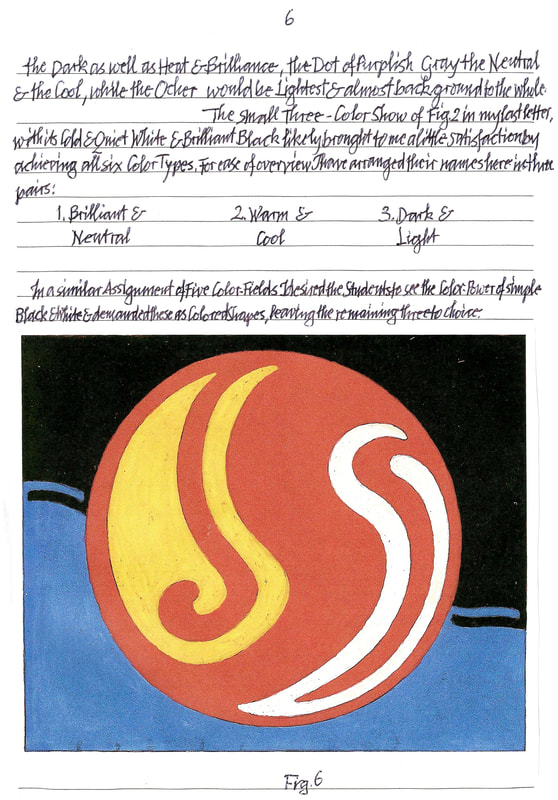 6
the Dark as well as Heat & Brilliance, the Dot of Purplish Gray the Neutral
& the Cool, while the Ocher would be Lightest & almost background to the whole.
The small Three-Color Show of Fig.2 in my last letter,
with its Cold & Quiet White & Brilliant Black likely brought to me a little satisfaction by
achieving all six Color Types. For ease of overview I have arranged their names here in three
pairs:
1. Brilliant & 2. Warm & 3. Dark &
Neutral Cool Light
In a similar Assignment of Five Color-Fields I desired the Students to see the Color-Power of simple
Black & White & demanded these as Colored Shapes, leaving the remaining three to choice.
Fig. 6